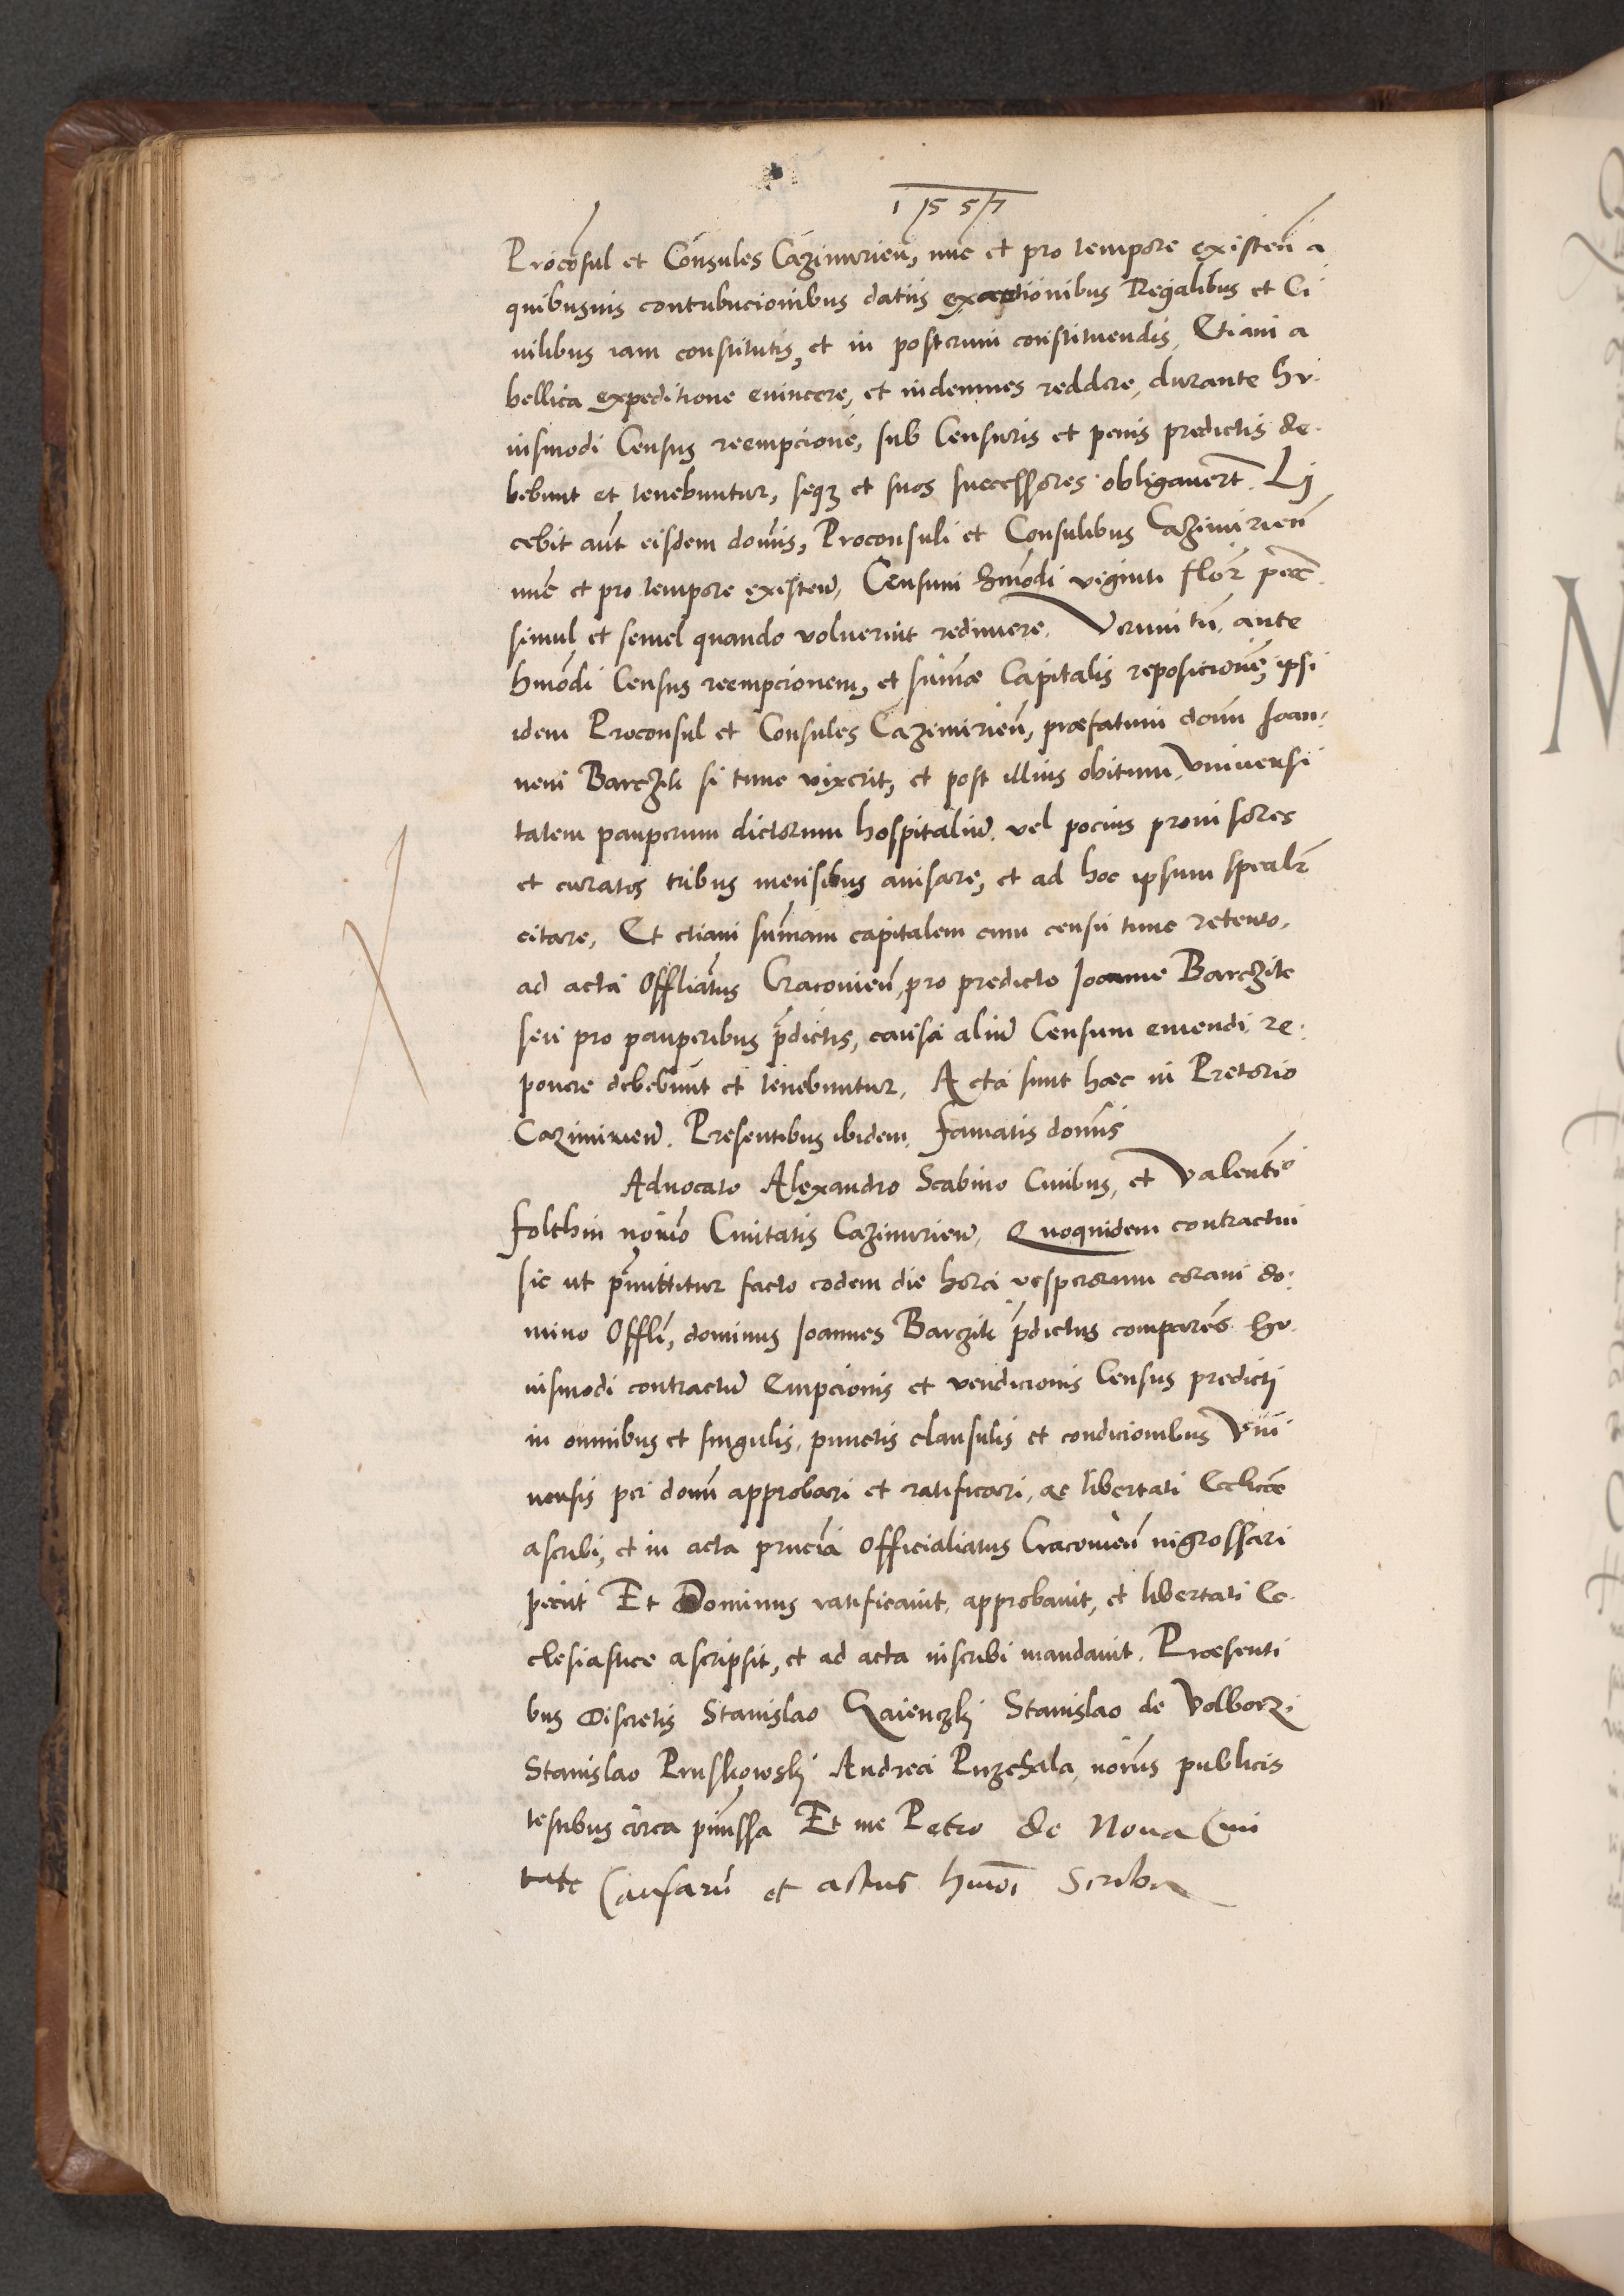 1557
Procōsul et Cōnsules Cazimirieñ, nūc et pro tempore existeñ a
quibusuis contribucionibus datiis exactionibus Regalibus et Ci
uilibus iam constitutis, et in posterum constituendis, Etiam a
bellica expeditione euincere, et indemnes reddere, durante hu-
iusmodi Census reempcione, sub Censuris et penis predictis de-
bebunt et tenebuntur, seqȝ et suos successores obligauerūt. Lj
cebit aūt eisdem domīs, Proconsuli et Consulibus Cazimirieñ
nūc et pro tempore existeñ, Censum hmōdi viginti flor pecē
simul et semel quando voluerint redimere. Verum tñ ante
hmōdi Census reempcionem, et sūmæ Capitalis reposicionē, ipsi
idem Proconsul et Consules Cazimirieñ, præfatum domī Joan-
nem Barczik si tunc vixerit, et post illius obitum, vniuersi
tatem pauperum dictorum hospitaliū, vel pocius prouisores
et curatos tribus mensibus auisare, et ad hoc ipsum spealr̄
citare, Et etiam sūmam capitalem cum censu tunc retento,
ad acta Offliātus Cracouieñ, pro predicto Joanne Barczik
seu pro pauperibus p̄dictis, causa aliū Censum emendi re-
ponere debebunt et tenebuntur, Acta sunt hæc in Pretorio
Cazimirieñ. Presentibus ibidem, famatis domīs
Aduocato Alexandro Scabino Ciuibus, et Valentō
folthin notāo Ciuitatis Cazimirieñ, Quoquidem contractui
sic ut p̄mittitur facto eodem die hora vesperorum coram do-
mino Offlī, dominus Joannes Barczik p̄dictus comparēs hu-
iusmodi contractū Empcionis et vendicionis Census predictj
in omnibus et singulis, punctis clausulis et condicionibus Vni
uersis per domī approbari et ratificari, ac libertati Ecclicæ
ascribi, et in acta prucīa Officialiatus Cracouieñ ingrossari
peciit Et Dominus ratificauit, approbauit, et libertati Ec-
clesiastice ascripsit, et ad acta inscribi mandauit. Præsenti
bus Discretis Stanislao Stanislao de Volborz,
Stanislao Pruskowskj Andrea Przechala, notīis publicis
testibus circa p̄missa Et me Petro de Noua Ciui
tate Causarū et actus hmōi Scriba